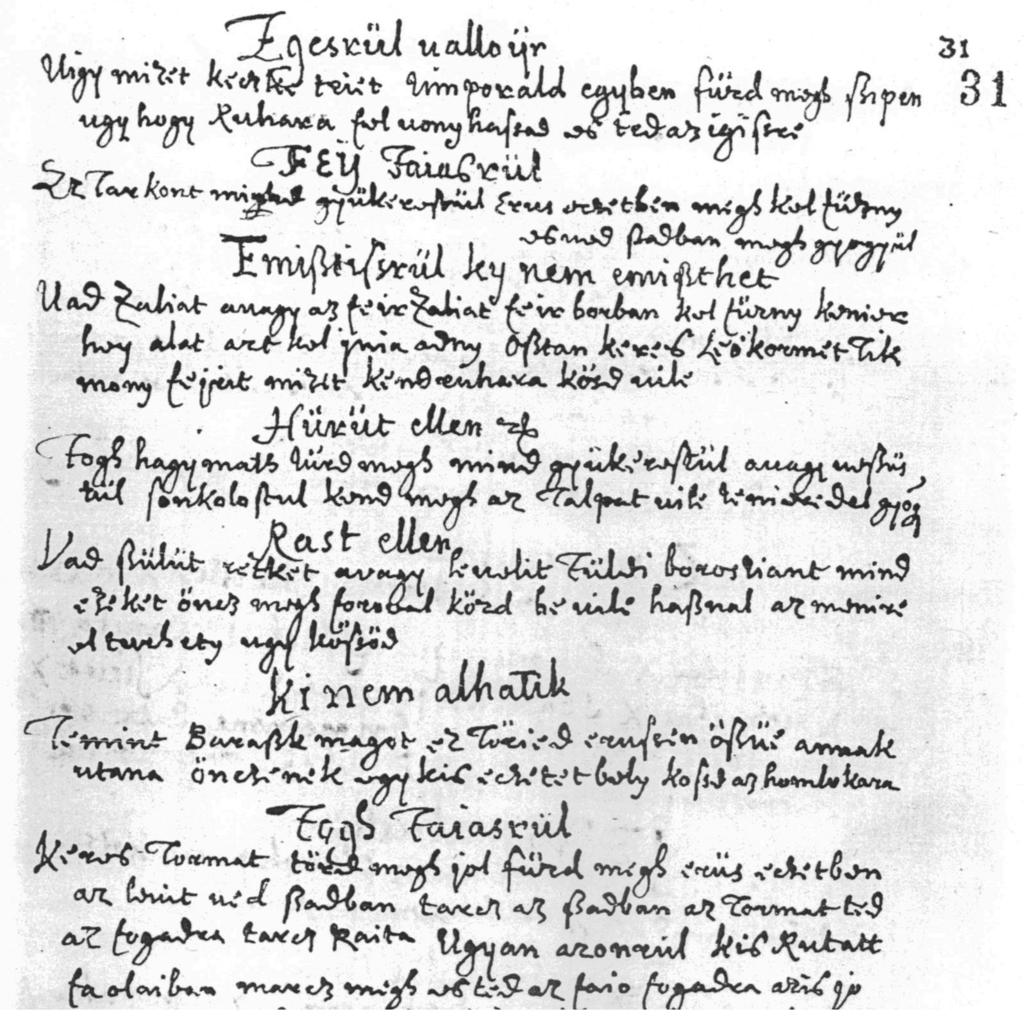 Egesrül ualloÿr
31
Uigy mizet kecske teiet Timporald egyben fürd megh ßipen
31
ugy hogy Ruhara fel uonyhassad es ted az igisre
FEŸ Faiasrül
Ez Tarkont gyükerestül Erus eczetben megh kel füzny
es ued ßadban megh gyogyül
Emißtisrül ky nem emißthet
Uad Zaliat auagy az feir Zaliat feir borban kel füzny kenier
hey alat azt kel jnia adny Oßtan keres Leökormet Tik
mony fejret mizet kendruhara kösd uile
Hürüt ellen
Fogh hagymath türd megh mind gyükerestül auagy
tül sonkolostul kend megh az Talpat uile
Rast ellen
Vad ßülüt retket auagy leuelit Füldi borostiant mind
ezeket öncz megh forobal körd be uile haßnal az menire
el türhety ugy kössöd
Ki nem alhatik
Temint Baraßk magot ez Töried erussen össüe annak
utana öncz egy kis eczetet bely kossd az homlokara
Fogh Faiasrül
Keres Tormat törd megh jol fürd megh erüs eczetben
az leuit ued ßadban tarcz az ßadban az Tormat ted
az fogadra tarcz Raita Ugyan azonrül kis Rutatt
fa olaiban marcz megh es ted az faio fogadra azis jo